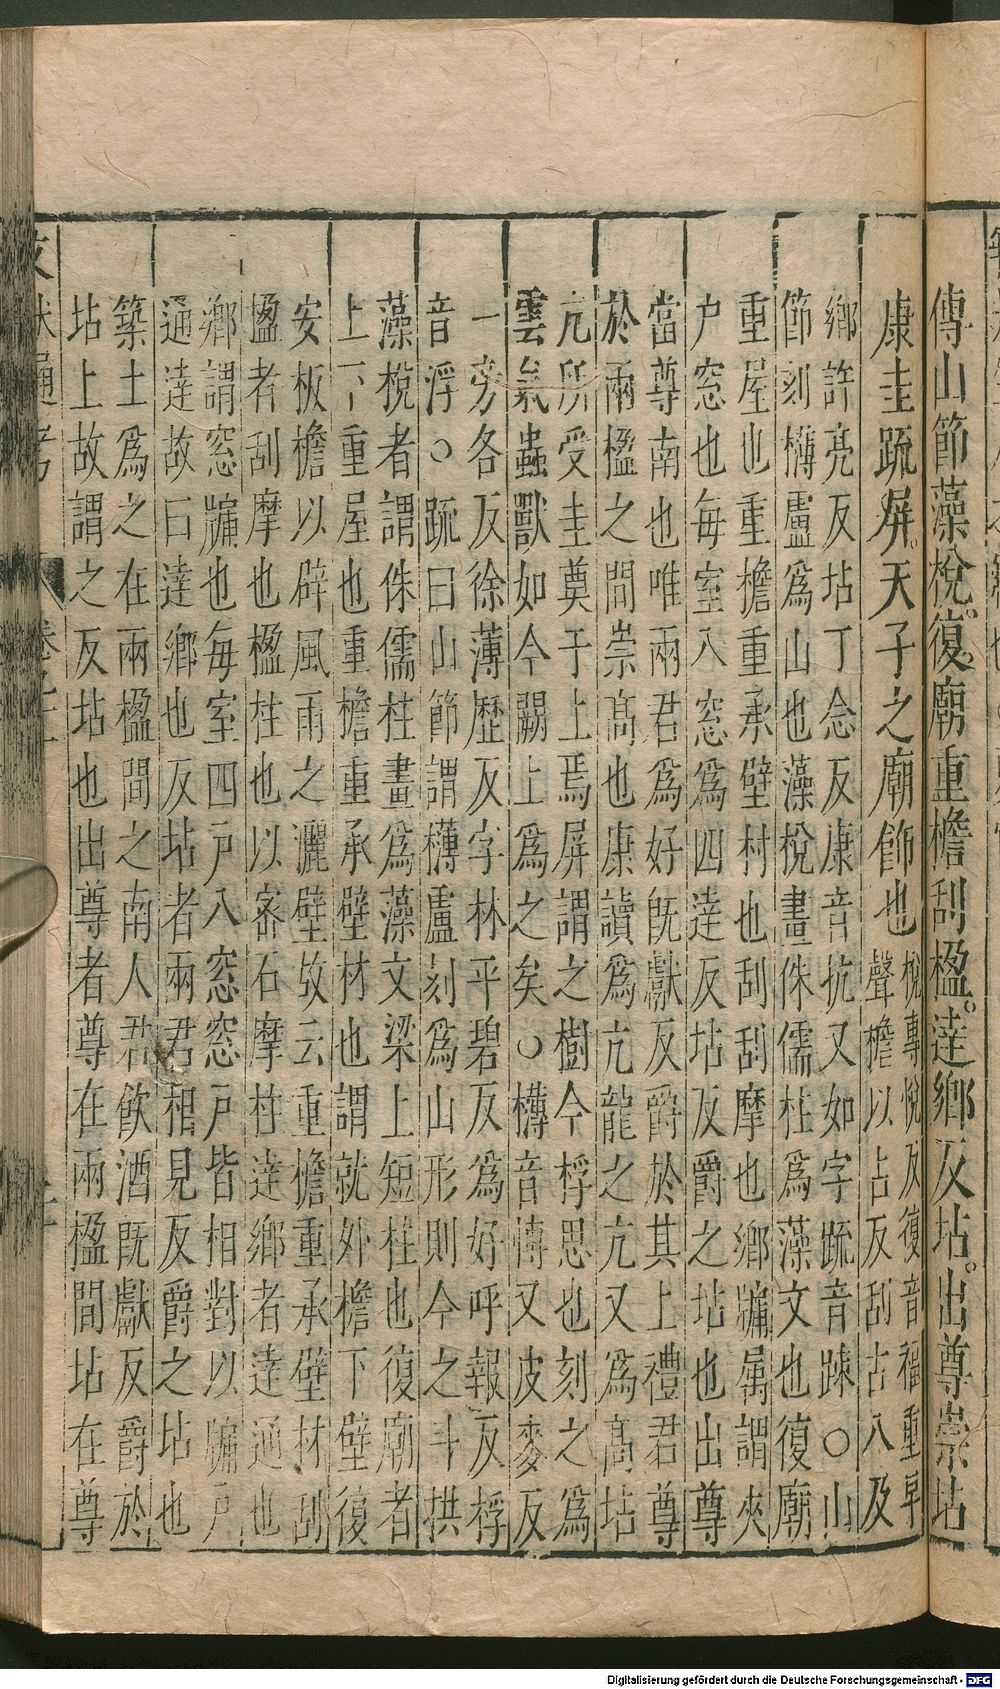 傳山節藻梲。復廟重檐刮楹。達鄉反坫。出尊崇坫
康圭疏屏。天子之廟飾也梲專悅反復音福重平
聲檐以占反刮古八及
鄉許亮反坫丁念反康音抗又如字疏音踈○山
節刻欂盧為山也藻梲畫侏儒柱為藻文也復廟
重屋也重檐重承壁村也刮刮摩也鄉牖属謂夾
戶窓也每室八窓為四達反坫反爵之坫也出尊
當尊南也唯兩君為好既獻反爵於其上禮君尊
於兩楹之間崇高也康讀為亢龍之亢又為高坫
亢所受圭奠于上焉屏謂之樹今桴思也刻之為
雲氣蟲獸如今闕上為之矣○欂音博又皮麥反
一旁各反徐薄歷反字林平碧反為好呼報反桴
音浮○疏曰山節謂欂盧刻為山形則今之斗拱
藻梲者謂侏儒柱畫為藻文梁上短柱也復廟者
上下重屋也重檐重承壁材也謂就外檐下壁復
安板檐以辟風雨之灑壁故云重檐重承壁材刮
楹者刮摩也楹柱也以密石摩柱達鄉者達通也
鄉謂窓牖也每室四戶八窓窓戶皆相對以牖戶
通達故曰達鄉也反坫者兩君相見反爵之坫也
築土為之在兩楹間之南人君飲酒既獻反爵於
坫上故謂之反坫也出尊者尊在兩楹間坫在尊
Digitalisierung gefördert durch die Deutsche Forschungsgemeinschaft - DFG